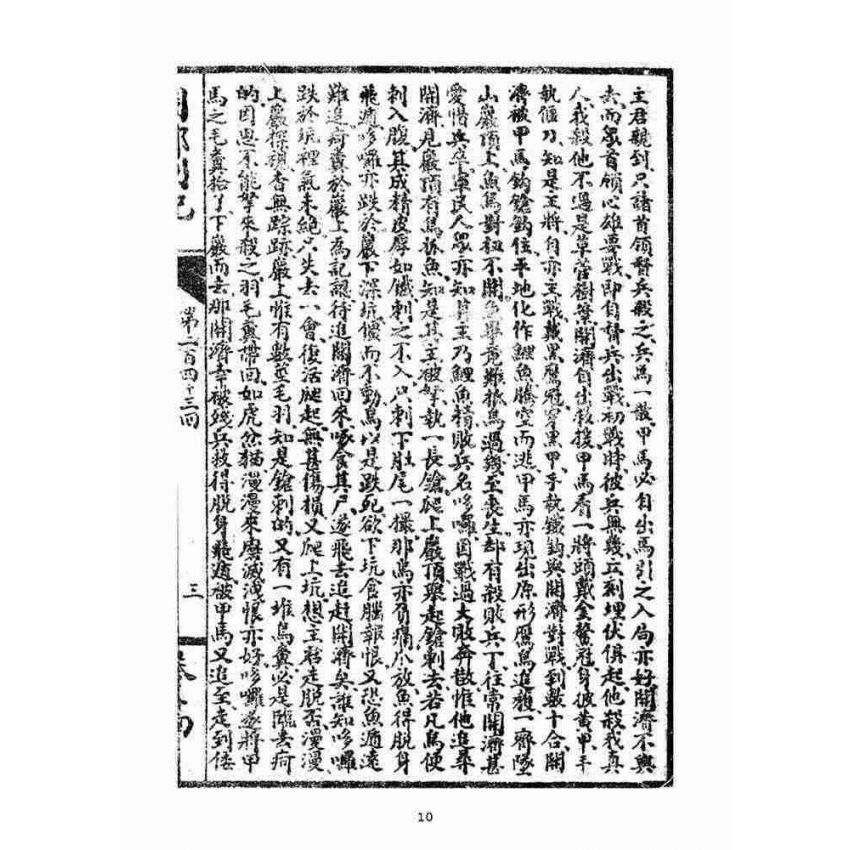 主君聽到只諸首領督兵殺之兵馬一散甲馬必自出馬引之入局亦好開濟不與
去而眾首領心雄要戰即自督兵出戰初戰時彼兵無幾立刻埋伏俱起他殺我真
人我殺他不過是草菅樹寮開濟自出救援甲馬看一將頭戴金鰲冠身披黃甲手
執偃刀知是主將自亦主戰戴黑鷹冠穿黑甲手執鐵鈎與開濟對戰到數十合開
濟被甲馬鈎鎗鈎住平地化作鯉魚騰空而逃甲馬亦現出原形鷹鳥追殺一齊墜
山巖頂上魚鳥對極不開魚畢竟難抵鳥過幾至喪生却有殺敗兵丁往常開濟甚
愛惜兵卒軍民人眾亦知其主乃鯉魚精敗兵名哆囉因戰過大敗奔散惟他追尋
開濟見巖頂有鳥抓魚知是其主被擊執一長鎗爬上巖頂舉起鎗刺去若凡鳥便
刺入腹其成精皮厚如鐵刺之不入只刺下肚尾一撮那鳥亦負痛爪放魚得脫身
飛遁哆囉亦跌於巖下深坑僵而不動鳥以是跌死欲下坑食腦報恨又恐魚遁遠
難追疴糞於巖上為記認待追開濟回來啄食其尸遂飛去追赶開濟矣誰知哆囉
跌於坑裡氣未絕只失去一會復活爬起無甚傷損又爬上坑想主君走脫否漫漫
上巖探視杳無踪跡巖上惟有數莖毛羽知是鎗刺的又有一堆鳥糞必是臨去疴
的因思不能拏來殺之羽毛糞帶回如虎忿猫漫漫來磨滅洩恨亦好哆囉遂將甲
馬之毛糞拾了下巖而去那開濟幸被殘兵救得脫身飛遁被甲馬又追至走到倭
第一百四十三回
三
10